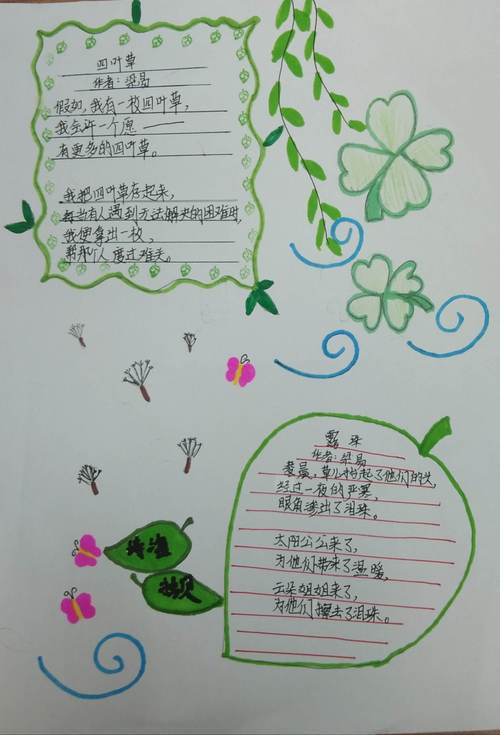 四叶草
作者：梁易
假如，我有一枚四叶草，
我会许一个愿——
有更多的四叶草。
我把四叶草存起来，
每当有人遇到无法解决的困难时，
我便拿出一枚，
帮那个人度过难关。
露珠
作者：梁易
清晨，草儿抬起了他们的头，
经过一夜的严寒，
眼角渗出了泪珠。
太阳公公来了，
为他们带来了温暖，
云朵姐姐来了，
为他们擦去了泪珠。
拾贝